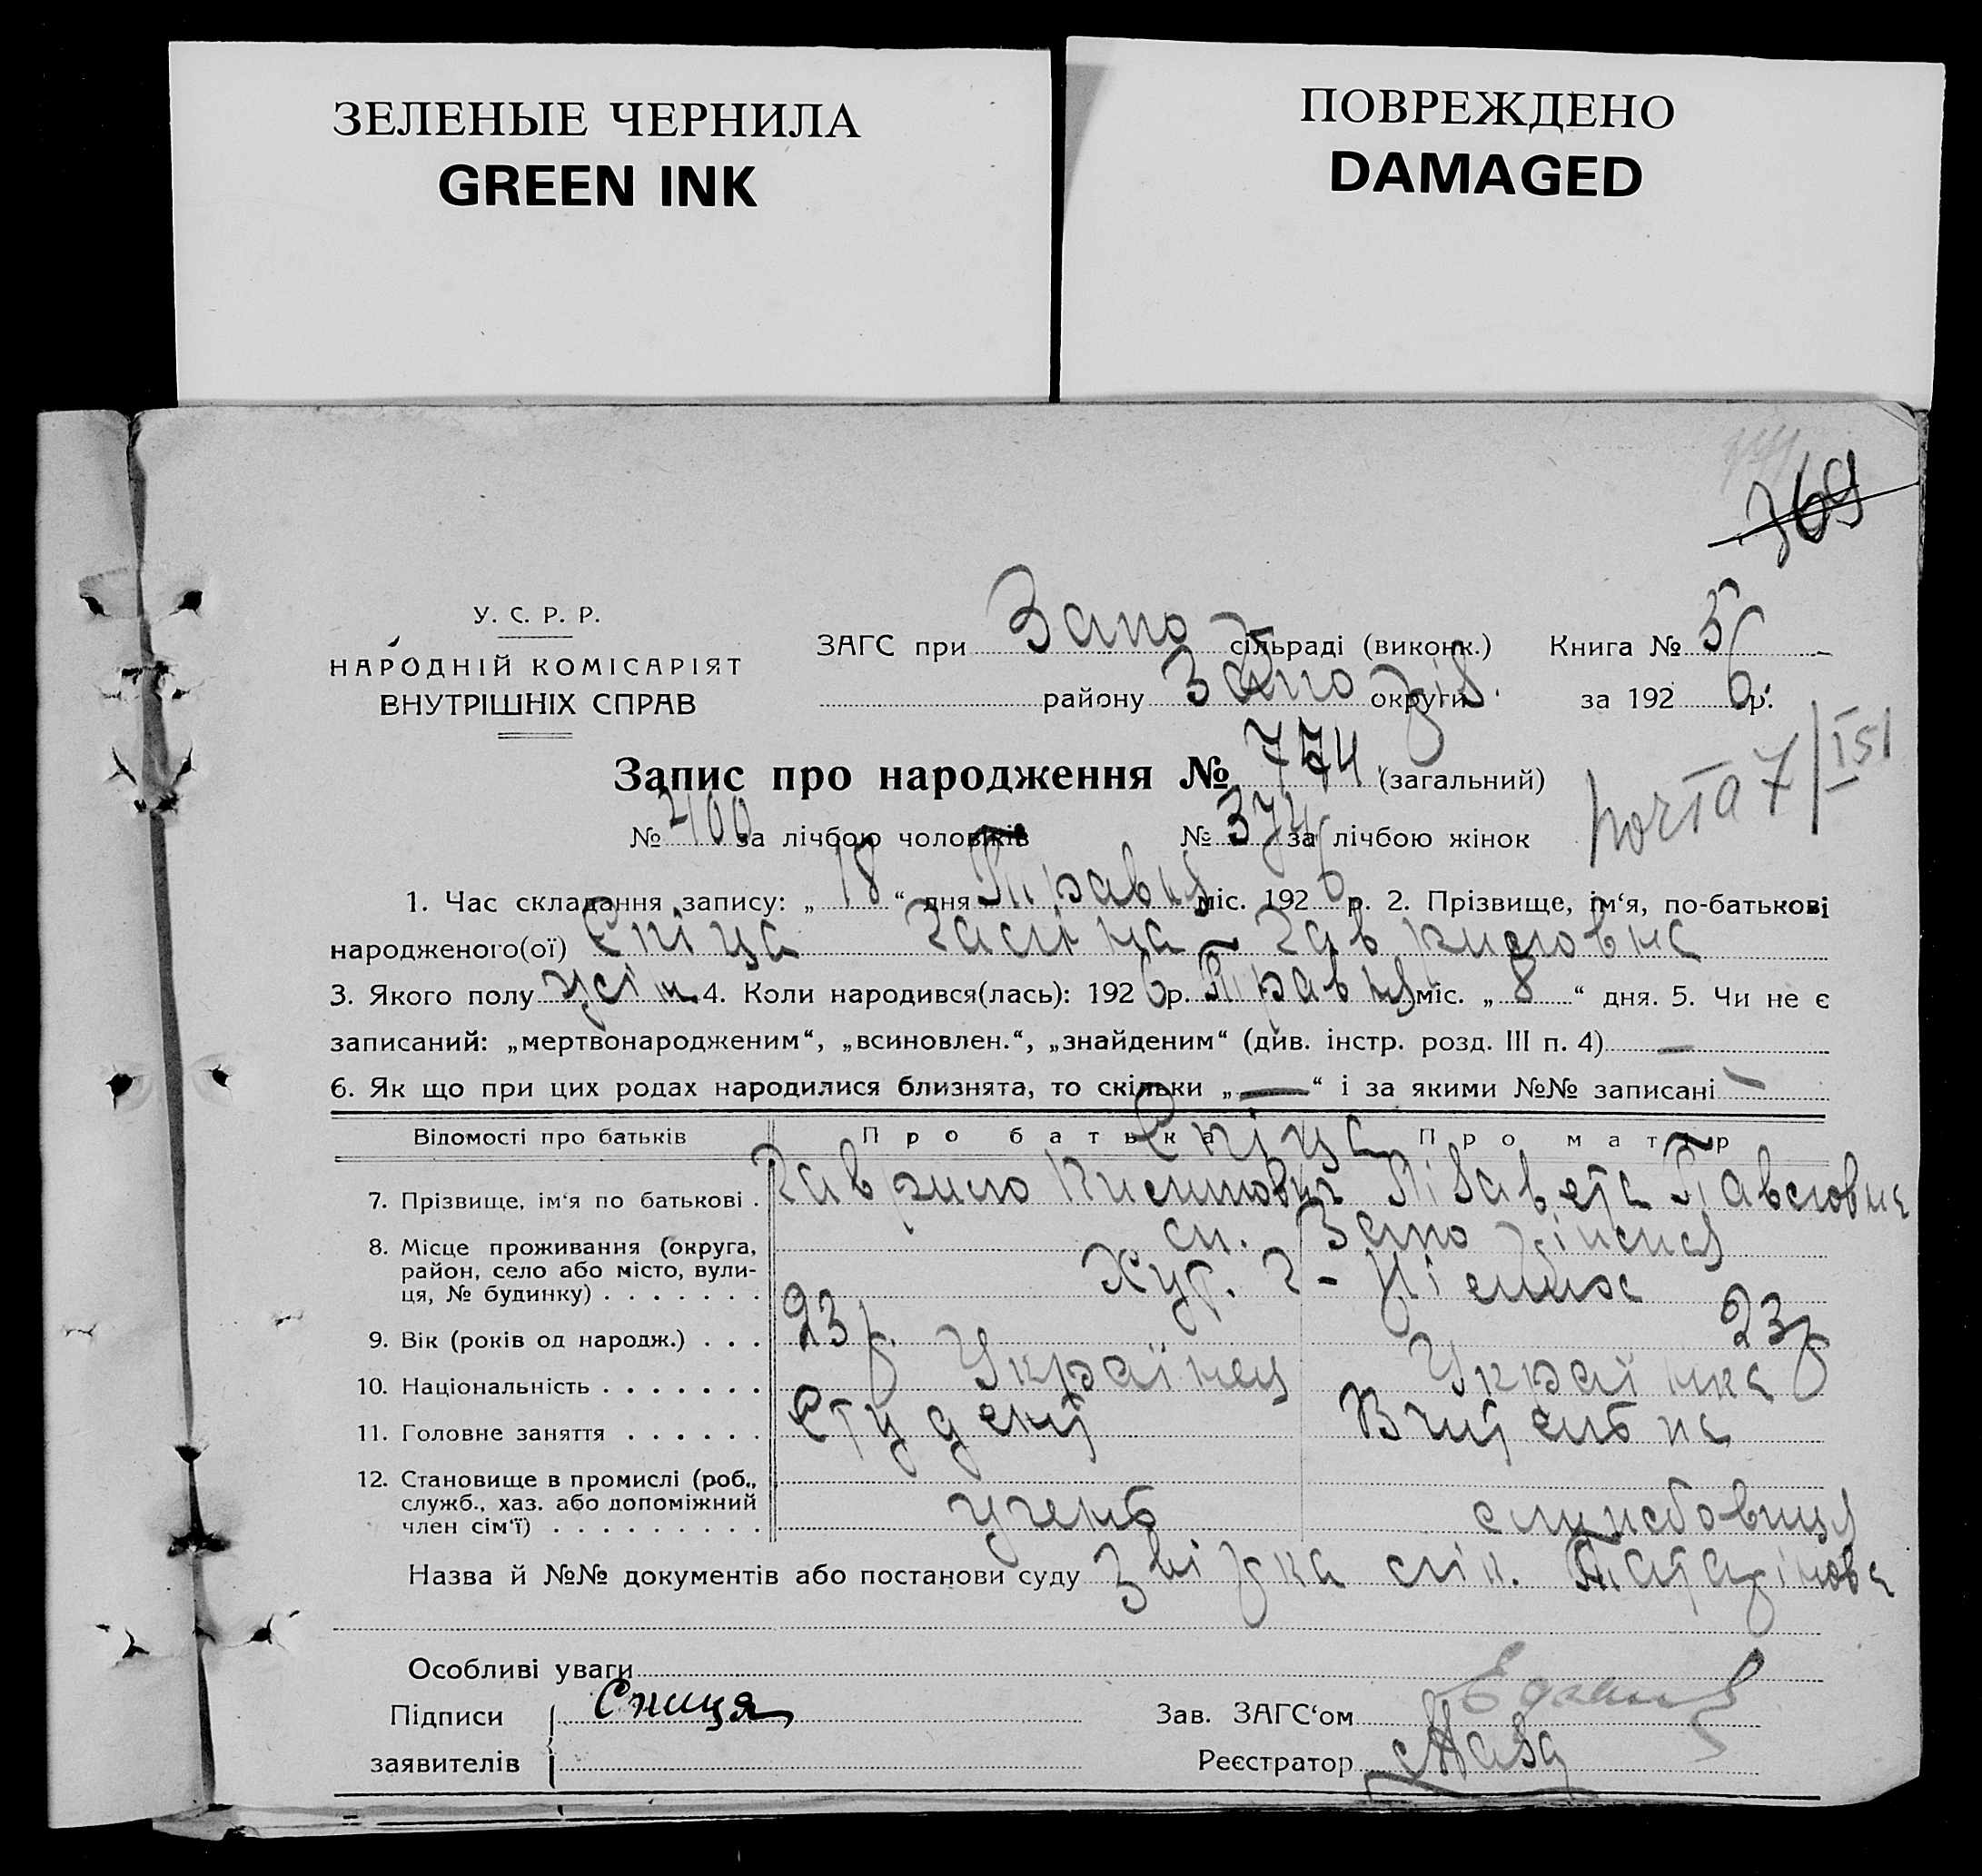 ЗЕЛЕНЫЕ ЧЕРНИЛА
GREEN INK
ПОВРЕЖДЕНО
DAMAGED
769
У. С. Р. Р.
НАРОДНІЙ КОМІСАРІЯТ
ВНУТРІШНІХ СПРАВ
ЗАГС при Запо сільраді (виконк.) Книга № 5
району Запо округи за 1926 р.
Запис про народження № 774 (загальний)
№ 400 за лічбою чоловіків № 374 за лічбою жінок
1. Час складання запису: „18“ дня Травня міс. 1926 р. 2. Прізвище, ім‘я, по-батькові
народженого(ої) Спіца Галіна Гавриловна
3. Якого полу жін. 4. Коли народився(лась): 1926 р. Травня міс. „8“ дня. 5. Чи не є
записаний: „мертвонародженим“, „всиновлен.“, „знайденим“ (див. інстр. розд. III п. 4) —
6. Як що при цих родах народилися близнята, то скільки „—“ і за якими №№ записані —
Відомості про батьків Про батька Про матір
Спіца
7. Прізвище, ім‘я по батькові . Гаврило Лізавета Павловна
8. Місце проживання (округа, ст. Запо
район, село або місто, вули- Хут.
ця, № будинку) . . . . . . .
9. Вік (років од народж.) . . . 23 р. 23 р
10. Національність . . . . . . . Українец Українка
11. Головне заняття . . . . . . Студент Вчителька
12. Становище в промислі (роб.,
служб., хаз. або допоміжний учень службовиця
член сім‘ї) . . . . . . . . .
Назва й №№ документів або постанови суду
Особливі уваги
Підписи Спиця Зав. ЗАГС‘ом
заявителів Реєстратор